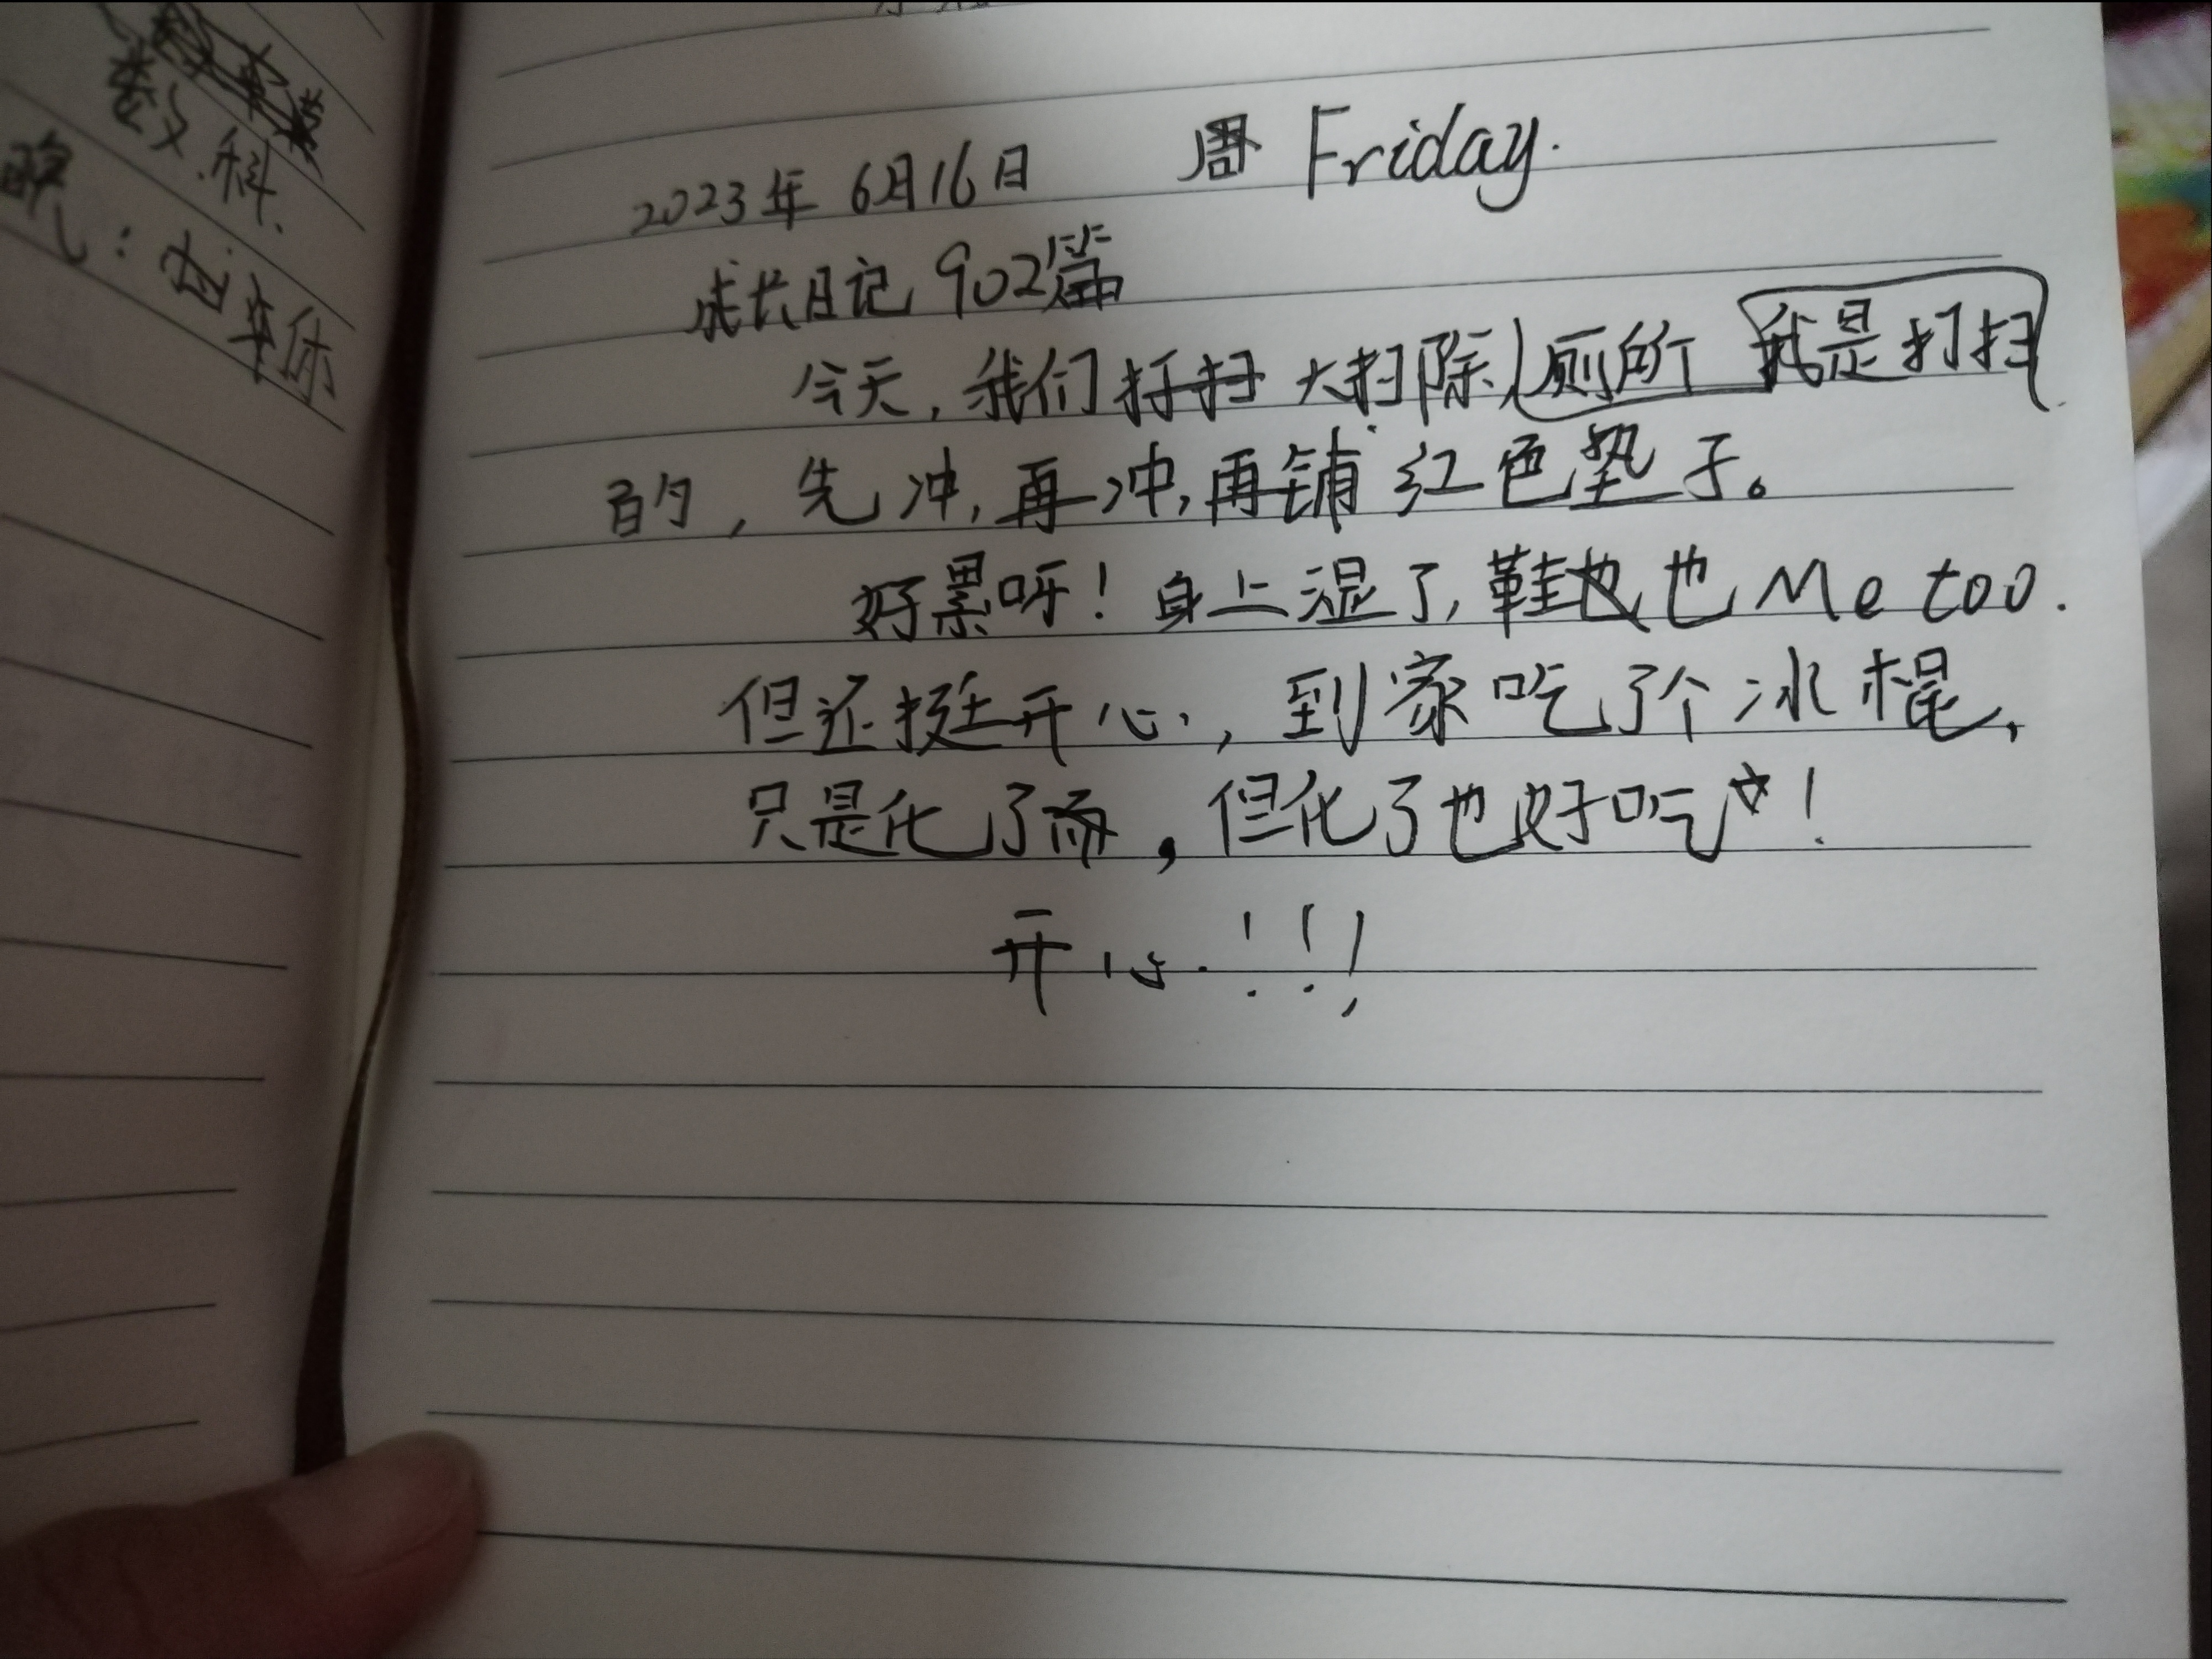 数 科.
晚：
2023年 6月16日 周 Friday.
成长日记 902篇
今天，我们打扫 大扫除，厕所 我是打扫
的，先冲，再冲，再铺 红色垫子。
好累呀！身上湿了，鞋也也 Me too.
但还挺开心，到家吃了个冰棍，
只是化了而，但化了也好吃！
开心！！！